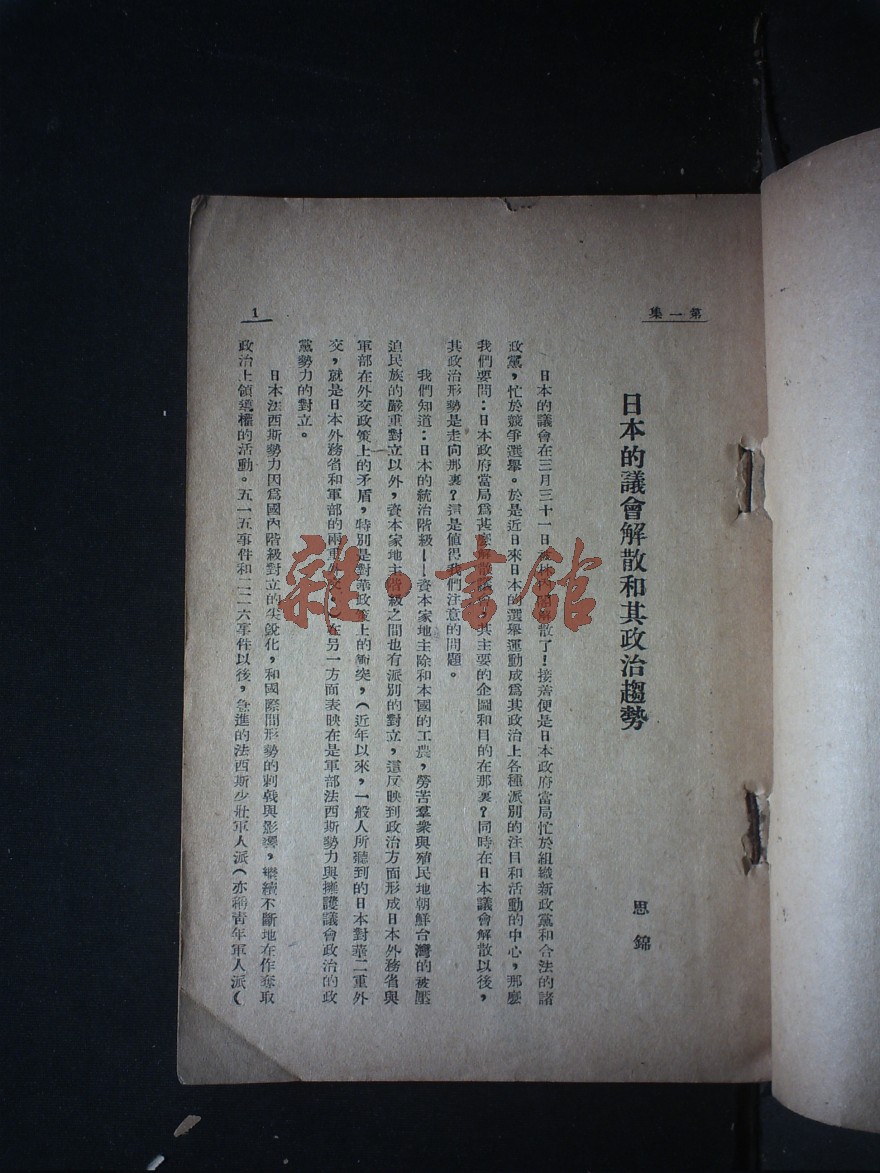 第一集
日本的議會解散和其政治趨勢
思錦
日本的議會在三月三十一日被林內閣解散了!接着便是日本政府當局忙於組織新政黨和合法的諸
政黨,忙於競爭選舉。於是近日來日本的選舉運動成爲其政治上各種派別的注目和活動的中心,那麼
我們要問:日本政府當局爲甚麼解散議會,其主要的企圖和目的在那裏?同時在日本議會解散以後,
其政治形勢是走向那裏?這是値得我們注意的問題。
我們知道:日本的統治階級——資本家地主除和本國的工農,勞苦羣衆與殖民地朝鮮台灣的被壓
迫民族的嚴重對立以外,資本家地主階級之間也有派別的對立,這反映到政治方面形成日本外務省與
軍部在外交政策上的矛盾,特別是對華政策上的衝突,(近年以來,一般人所聽到的日本對華二重外
交,就是日本外務省和軍部的兩重外交,)在另一方面表映在是軍部法西斯勢力與擁護議會政治的政
黨勢力的對立。
日本法西斯勢力因爲國內階級對立的尖銳化,和國際間形勢的刺戟與影響,繼續不斷地在作奪取
政治上領導權的活動。五一五事件和二二六事件以後,急進的法西斯少壯軍人派(亦稱靑年軍人派(
1
雜·書館